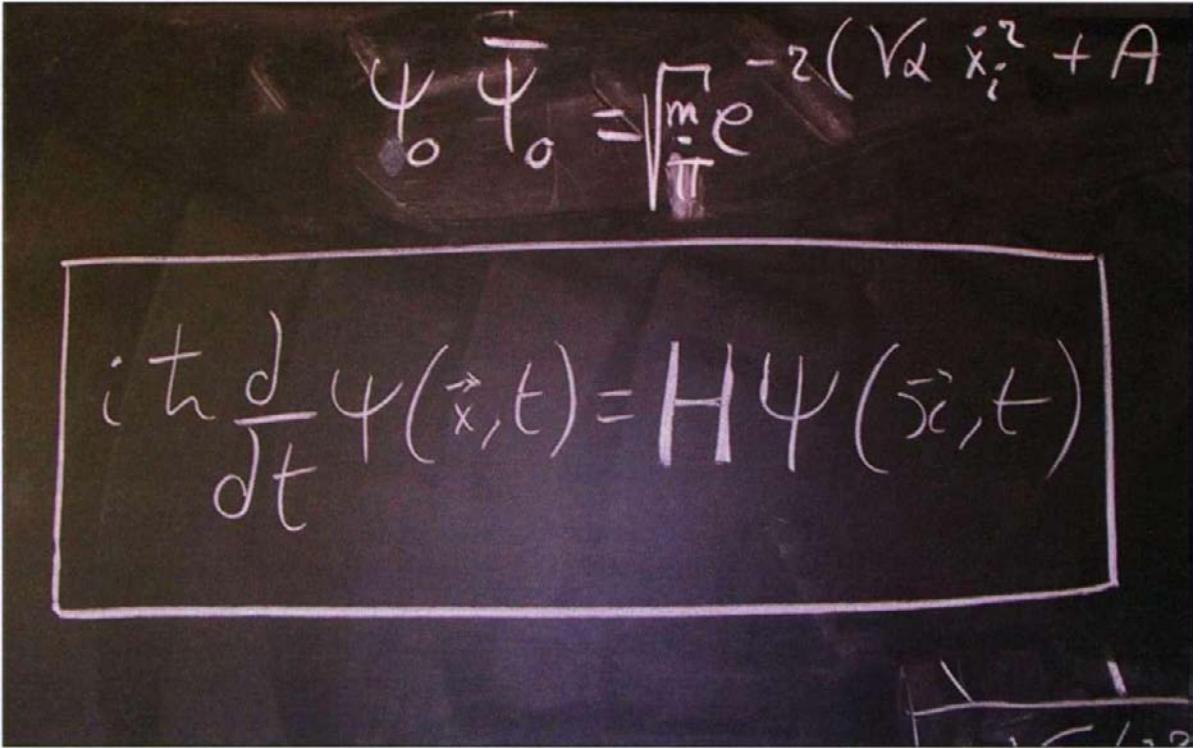 ψ₀ ψ̄₀ = √(m/π) e^(-2(√α ẋᵢ² + A
iħ d/dt ψ(x⃗,t) = H ψ(x⃗,t)